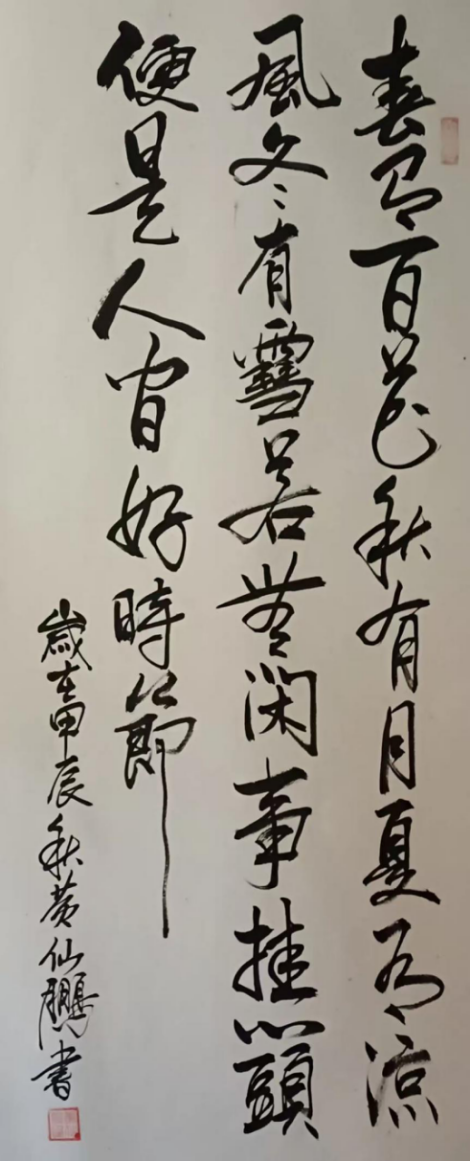 春有百花秋有月夏有涼
風冬有雪若無閑事挂心頭
便是人間好時節
歲在甲辰秋黄仙鵬書